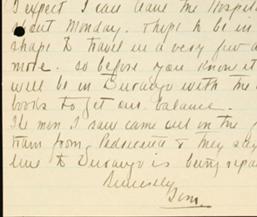 I expect I can leave the Hospital
about Monday. I hope to be in
shape to travel in a very few
more. so before you know it
will be in Durango with the
books to get our balance.
The men I saw came out on the
train from Pedriceña & they say
line to Durango is being
Sincerely
Tom